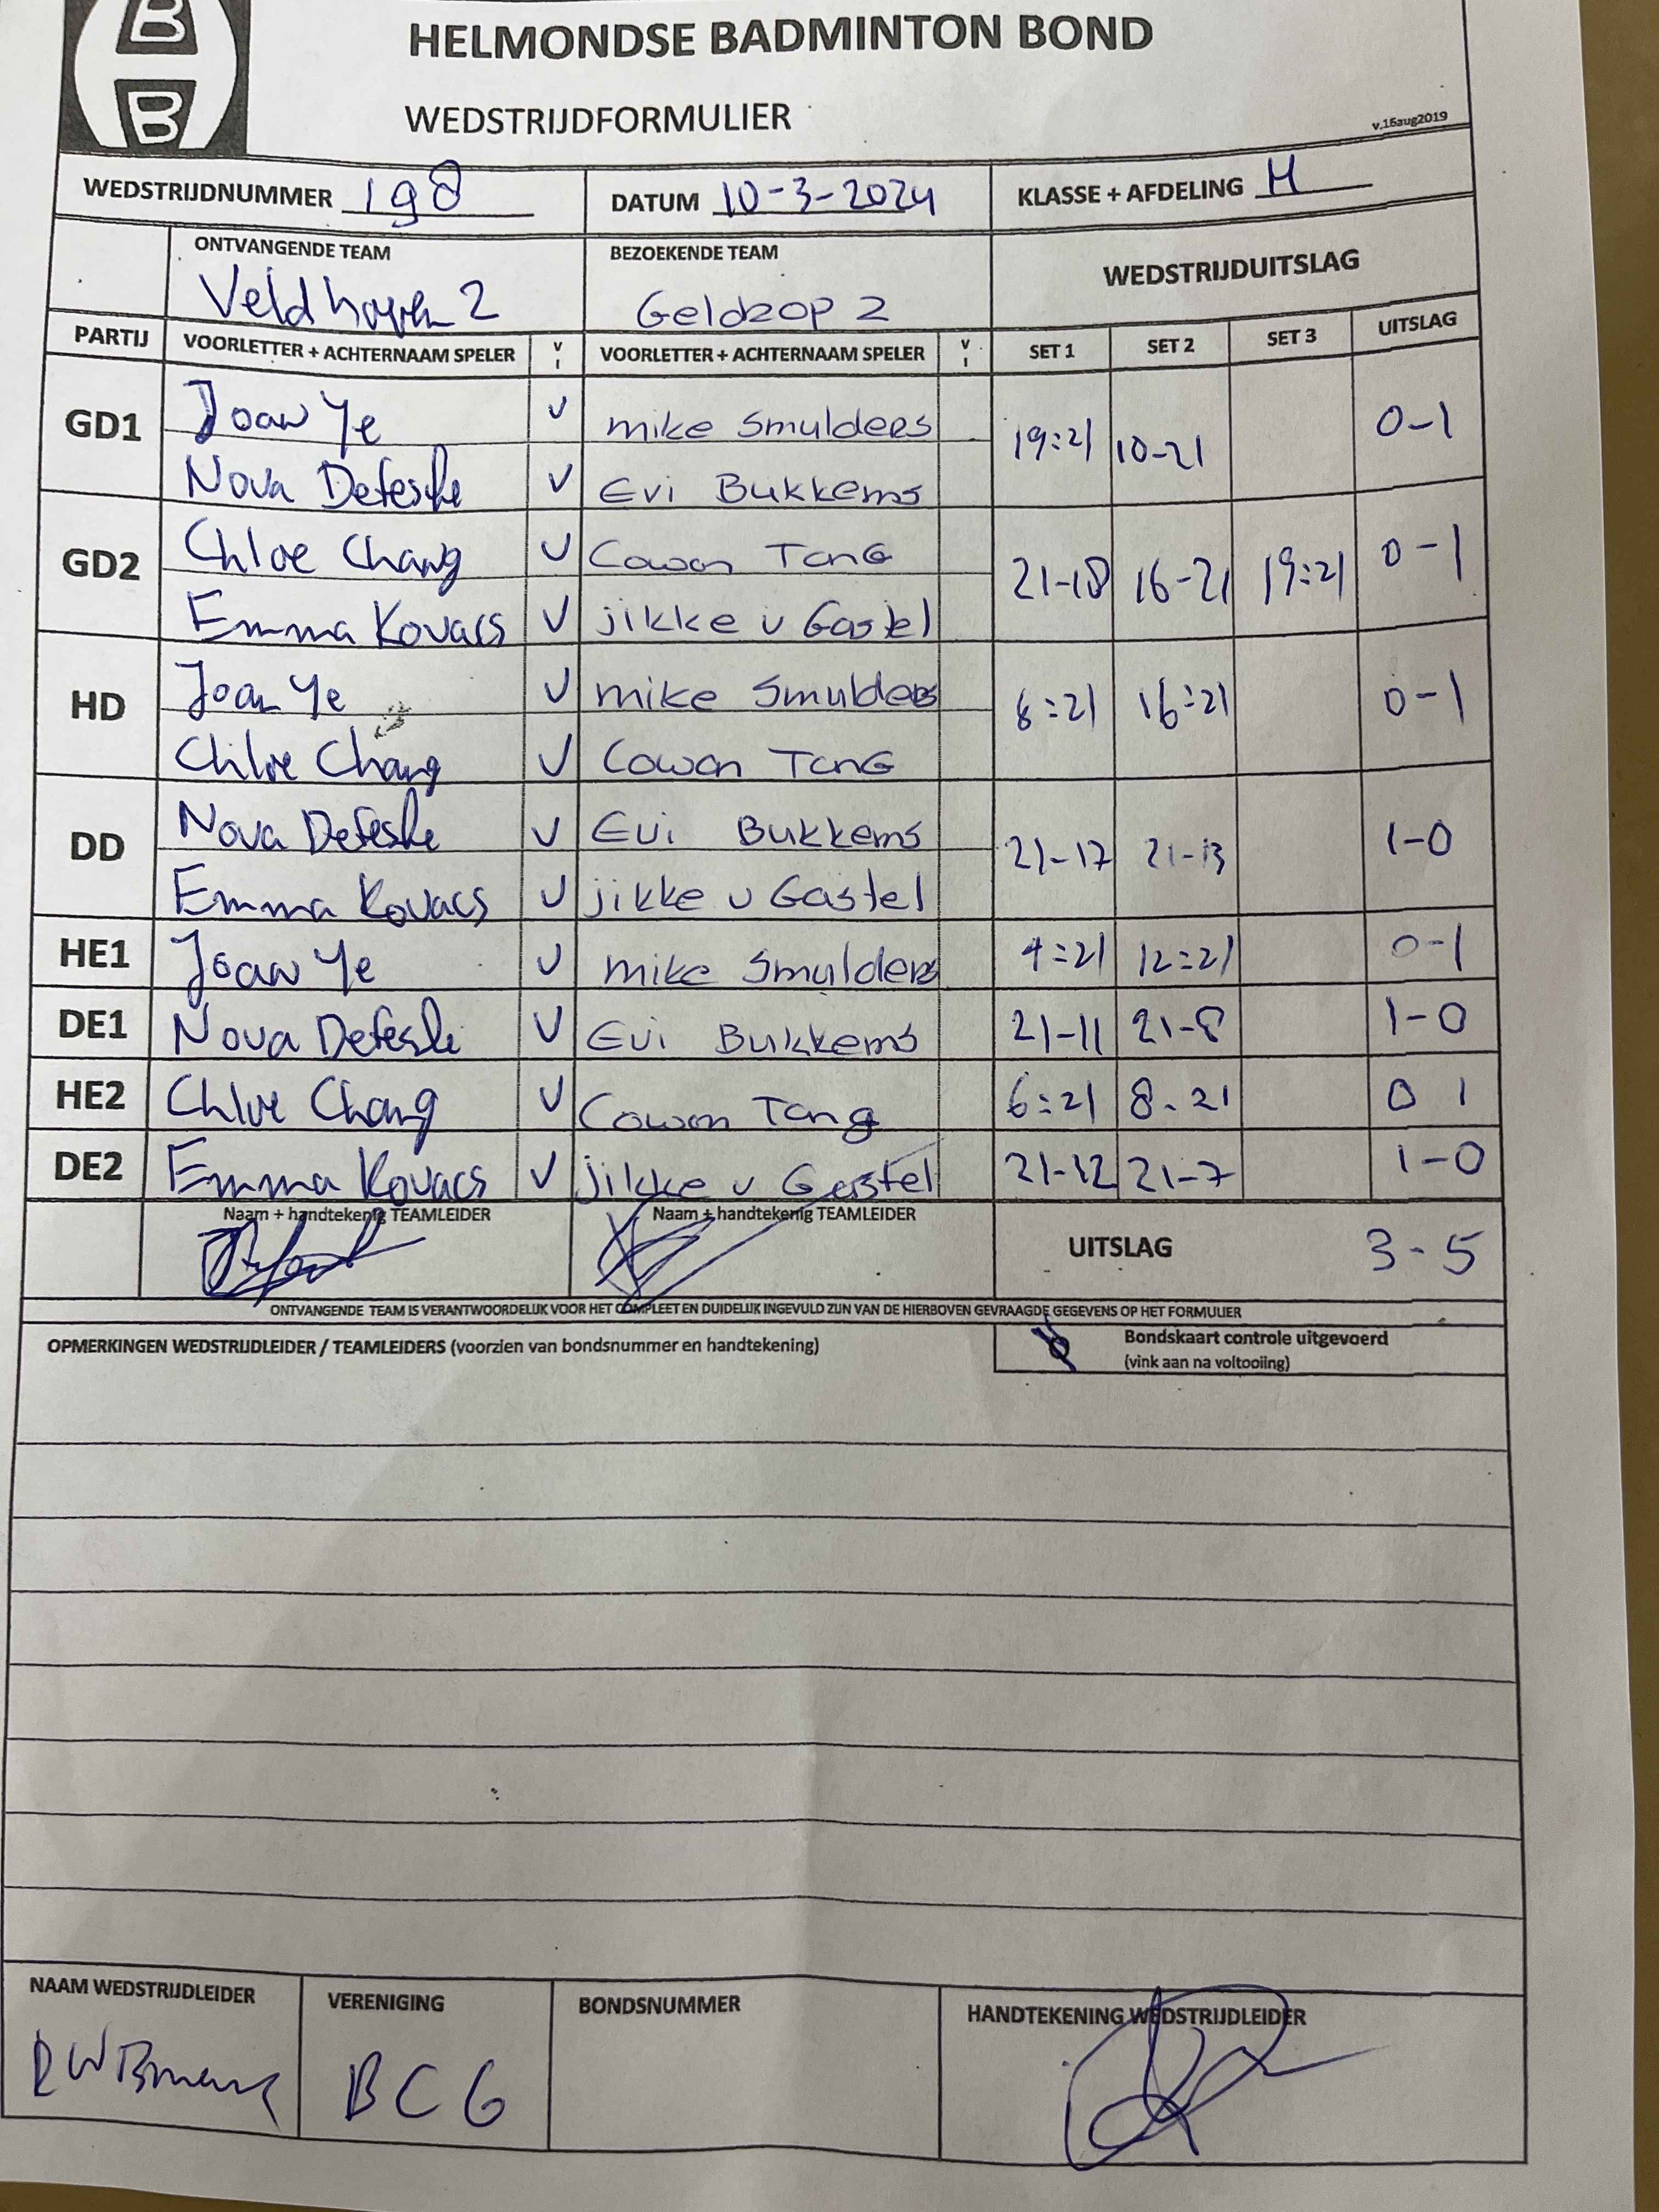 B
B
HELMONDSE BADMINTON BOND
WEDSTRIJDFORMULIER
v.16aug2019
WEDSTRIJDNUMMER 198 DATUM 10-3-2024 KLASSE + AFDELING H
ONTVANGENDE TEAM BEZOEKENDE TEAM WEDSTRIJDUITSLAG
Veldhoven 2 Geldrop 2
PARTIJ VOORLETTER + ACHTERNAAM SPELER V I VOORLETTER + ACHTERNAAM SPELER V I SET 1 SET 2 SET 3 UITSLAG
GD1 Joan Ye V mike Smulders 19:21 10-21 0-1
Nova Defesche V Evi Bukkems
GD2 Chloe Chang V Cowan Tang 21-18 16-21 19:21 0-1
Emma Kovacs V jikke v Gastel
HD Joan Ye V mike Smulders 6:21 16:21 0-1
Chloe Chang V Cowan Tang
DD Nova Defesche V Evi Bukkems 21-17 21-13 1-0
Emma Kovacs V jikke v Gastel
HE1 Joan Ye V mike Smulders 4:21 12:21 0-1
DE1 Nova Defesche V Evi Bukkems 21-11 21-8 1-0
HE2 Chloe Chang V Cowan Tang 6:21 8-21 0 1
DE2 Emma Kovacs V jikke v Gastel 21-12 21-7 1-0
Naam + handtekenig TEAMLEIDER Naam + handtekenig TEAMLEIDER UITSLAG 3-5
ONTVANGENDE TEAM IS VERANTWOORDELIJK VOOR HET COMPLEET EN DUIDELIJK INGEVULD ZIJN VAN DE HIERBOVEN GEVRAAGDE GEGEVENS OP HET FORMULIER
OPMERKINGEN WEDSTRIJDLEIDER / TEAMLEIDERS (voorzien van bondsnummer en handtekening) Bondskaart controle uitgevoerd
(vink aan na voltooiing)
NAAM WEDSTRIJDLEIDER VERENIGING BONDSNUMMER HANDTEKENING WEDSTRIJDLEIDER
BCG